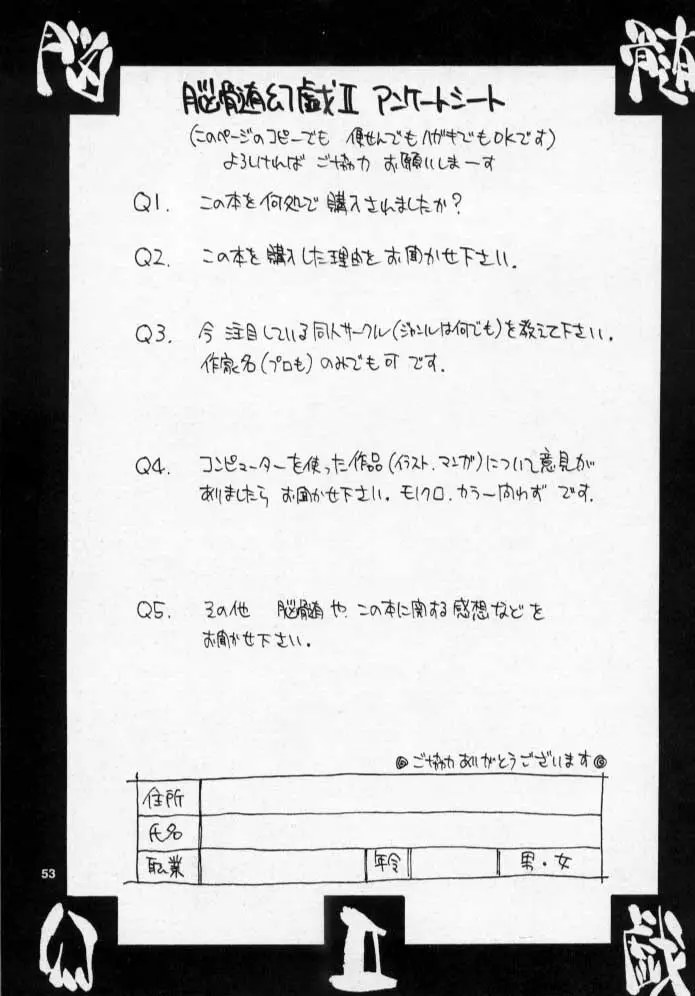 脳
髄
脳髄幻戯Ⅱ アンケートシート
(このページのコピーでも 便せんでもハガキでもOKです)
よろしければ ご協力 お願いしまーす
Q1. この本を何処で購入されましたか?
Q2. この本を購入した理由をお聞かせ下さい.
Q3. 今 注目している同人サークル(ジャンルは何でも)を教えて下さい.
作家名(プロも)のみでも可 です.
Q4. コンピューターを使った作品(イラスト.マンガ)について意見が
ありましたら お聞かせ下さい. モノクロ.カラー問わず です.
Q5. その他 脳髄や、この本に関する感想などを
お聞かせ下さい.
◎ご協力ありがとうございます◎
住所
氏名
職業 年令 男・女
53
幻
Ⅱ
戯